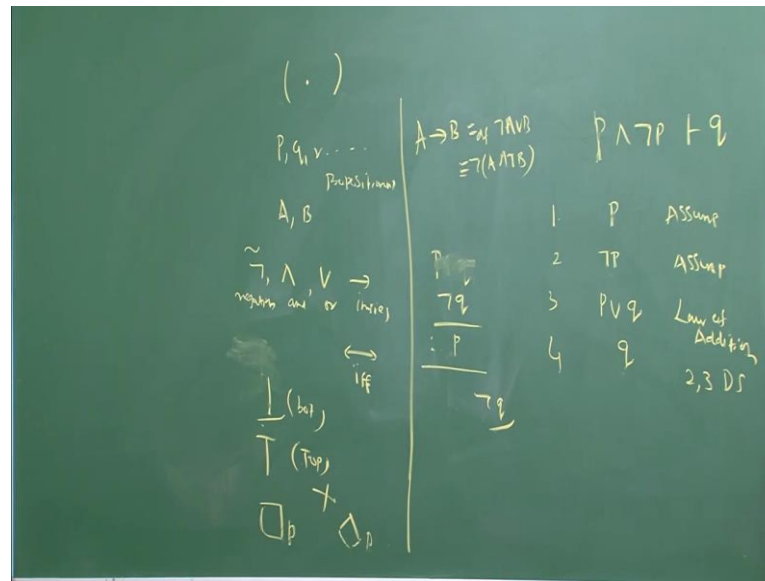 ( . )
P, q, r .....
Propositional
A, B
~
¬, ∧, ∨ →
negation and or implies
↔
iff
⊥ (bot)
T (Top)
X
□p ◇p
A → B ≡ df ¬A∨B
≡ ¬(A∧¬B)
P
¬q
: P
¬q
P ∧ ¬P ⊢ q
1. P Assump
2 ¬P Assump
3 P∨q Law of
Addition
4 q
2,3 DS